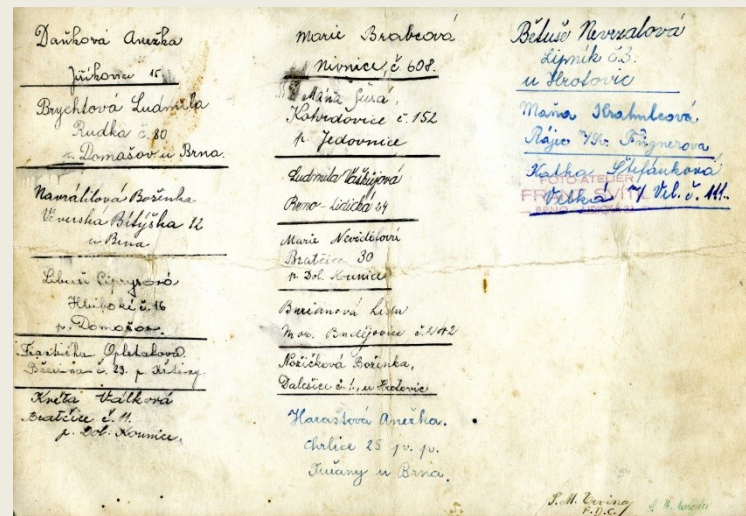 Daňková Anežka
Jiříkovice 15
Brychtová Ludmila
Rudka č. 80
Domašov u Brna.
Navrátilová Boženka
Veverská Bitýška 12
u Brna
Libuši Ciprysová
Hluboké č. 16
p. Domašov.
Františka Opletalová
č. 29. p.
Květa Válková
Bratčice č. 11.
p. Dol. Kounice.
Marie Brabcová
Nivnice, č. 608.
Máňa
Kotvrdovice č. 152
p. Jedovnice
Ludmila
Brno - Lidická 24
Marie
Bratčice 30
p. Dol. Kounice
Buriánová Lída
Mor. Budějovice č. 242
Nožičková Boženka,
Dalešice č. 1., u Hrotovic
Haraštová Anežka.
Chrlice 25 p. p.
Tuřany u Brna.
Běluše Nevrzalová
Lipník č. 3.
u Hrotovic
Maňa Krahulcová,
Rájec Fügnerova
Katka Štefánková
FOTO-ATELIER
Velká Vel. č. 111.